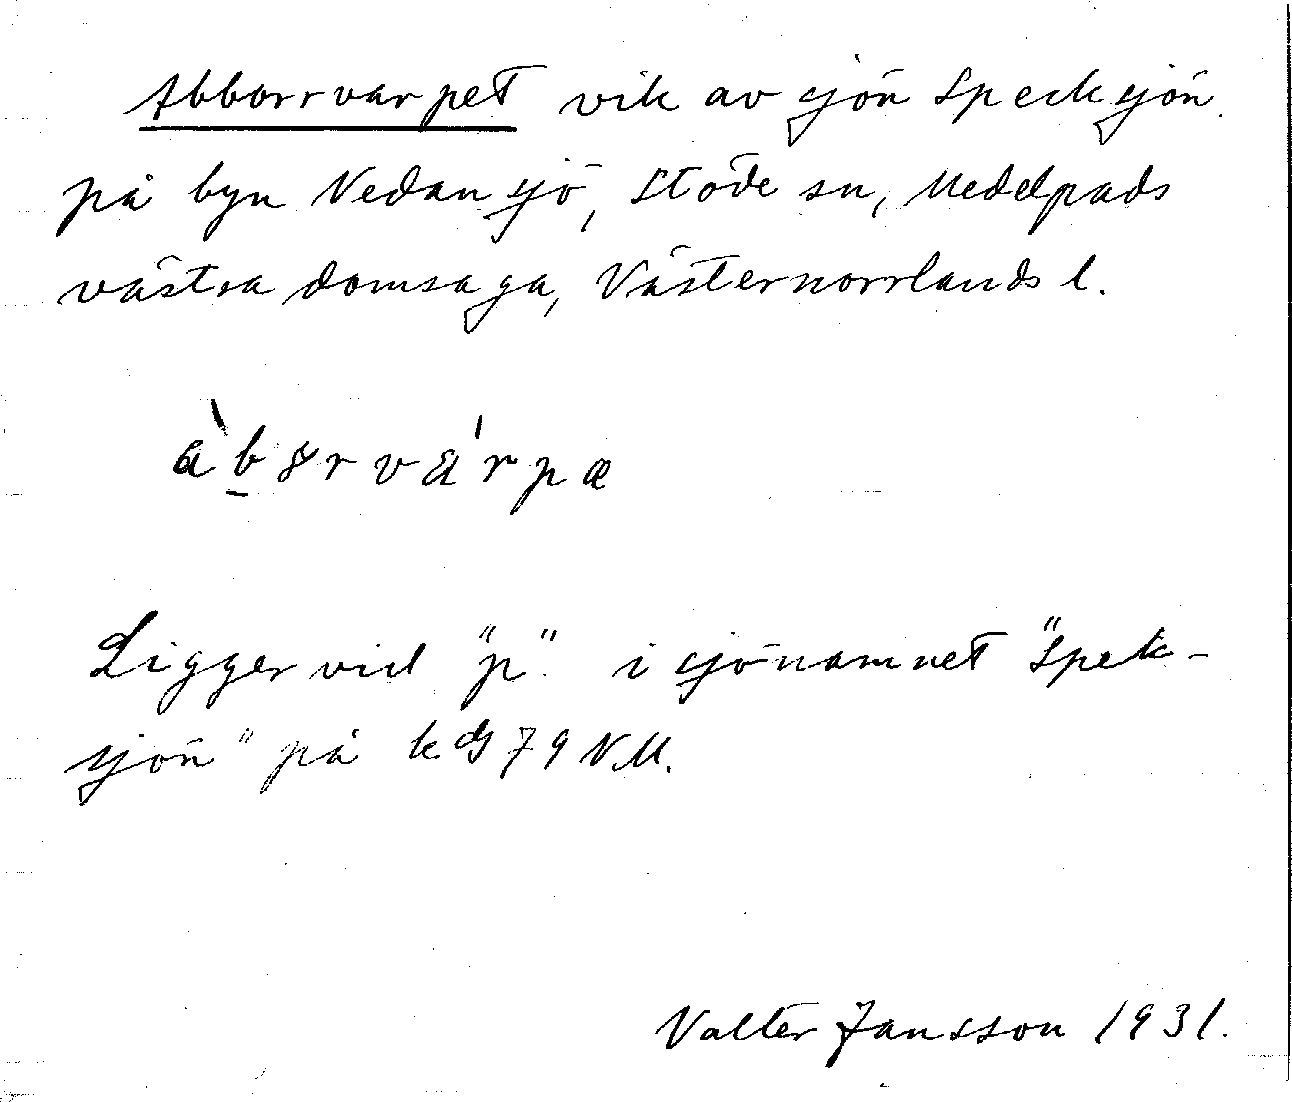 Abborrvarpet vik av sjön Specksjön
på byn Vedansjö, Stöde sn, Medelpads
västra domsaga, Västernorrlands l.
Ligger vid "p" i sjönamnet "Spek-
sjön" på 79 NV.
Valter Jansson 1931.